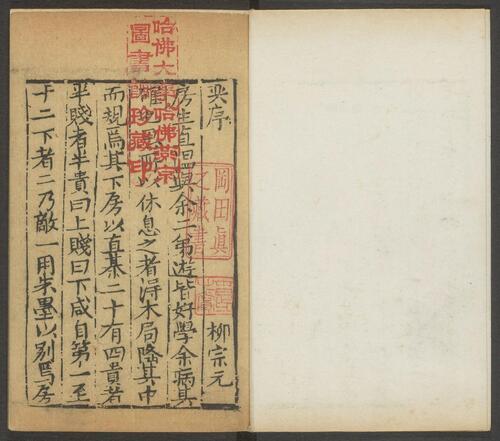 奕序 柳宗元
房生直昷與余二弟遊皆好學余病其
所以休息之者淂木局隆其中
而規焉其下房以直棊二十有四貴者
半賤者半貴曰上賤曰下咸自第一至
于二下者二乃敵一用朱墨以別焉房
哈佛大學哈佛燕京
圖書館珍藏印
岡田眞
之藏書